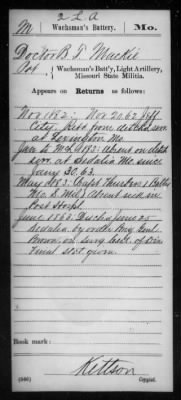 2 L A
M | Wachsman's Battery. | Mo.
Doctor B. T. Mackie
Pvt, Wachsman's Batt'y, Light Artillery,
Missouri State Militia.
Appears on Returns as follows:
Nov 1862: Nov 20. 62 Jeff
City, Miss from detch'd serv
at Lexington Mo.
Jan to Mch 1863: Absent on detch
serv. at Sedalia Mo. since
Jany 30. 63.
May 1863. Capt Thurber's Batty
Mo. S. Mil.) Absent sick in
Post Hosp'l.
June 1863: Disch'd June 25
Sedalia by order Brig Genl
Brown, on Surg. Cert. of Dis
final stat given.
Book mark:
Kettson
(546) Copyist.